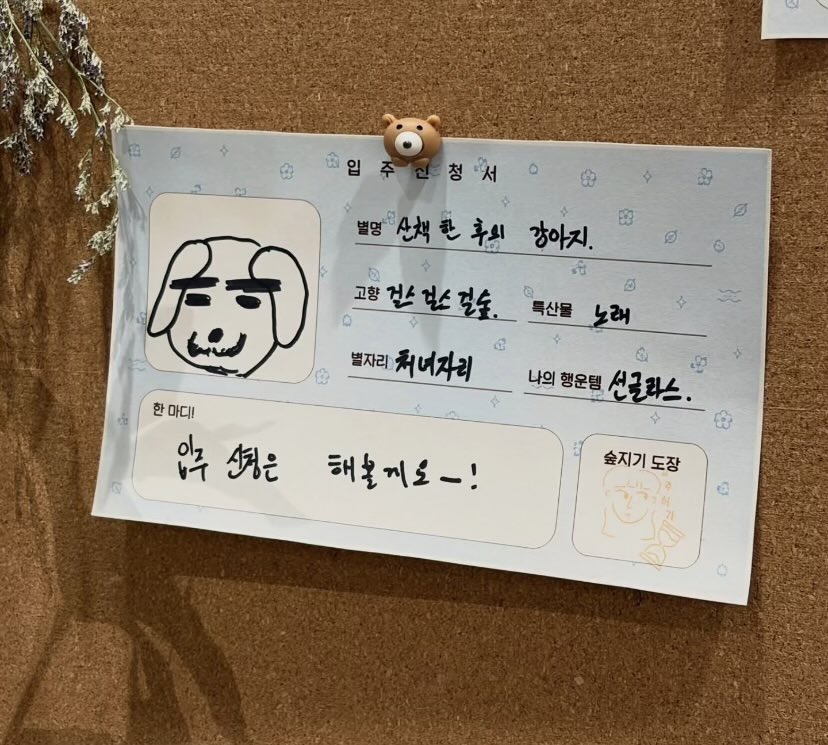 입주신청서
별명 산책 한 후의 강아지.
고향 걸스걸스걸숲. 특산물 노래
별자리 처녀자리 나의 행운템 선글라스.
한 마디!
입주 신청은 해볼게요ㅡ!
숲지기 도장